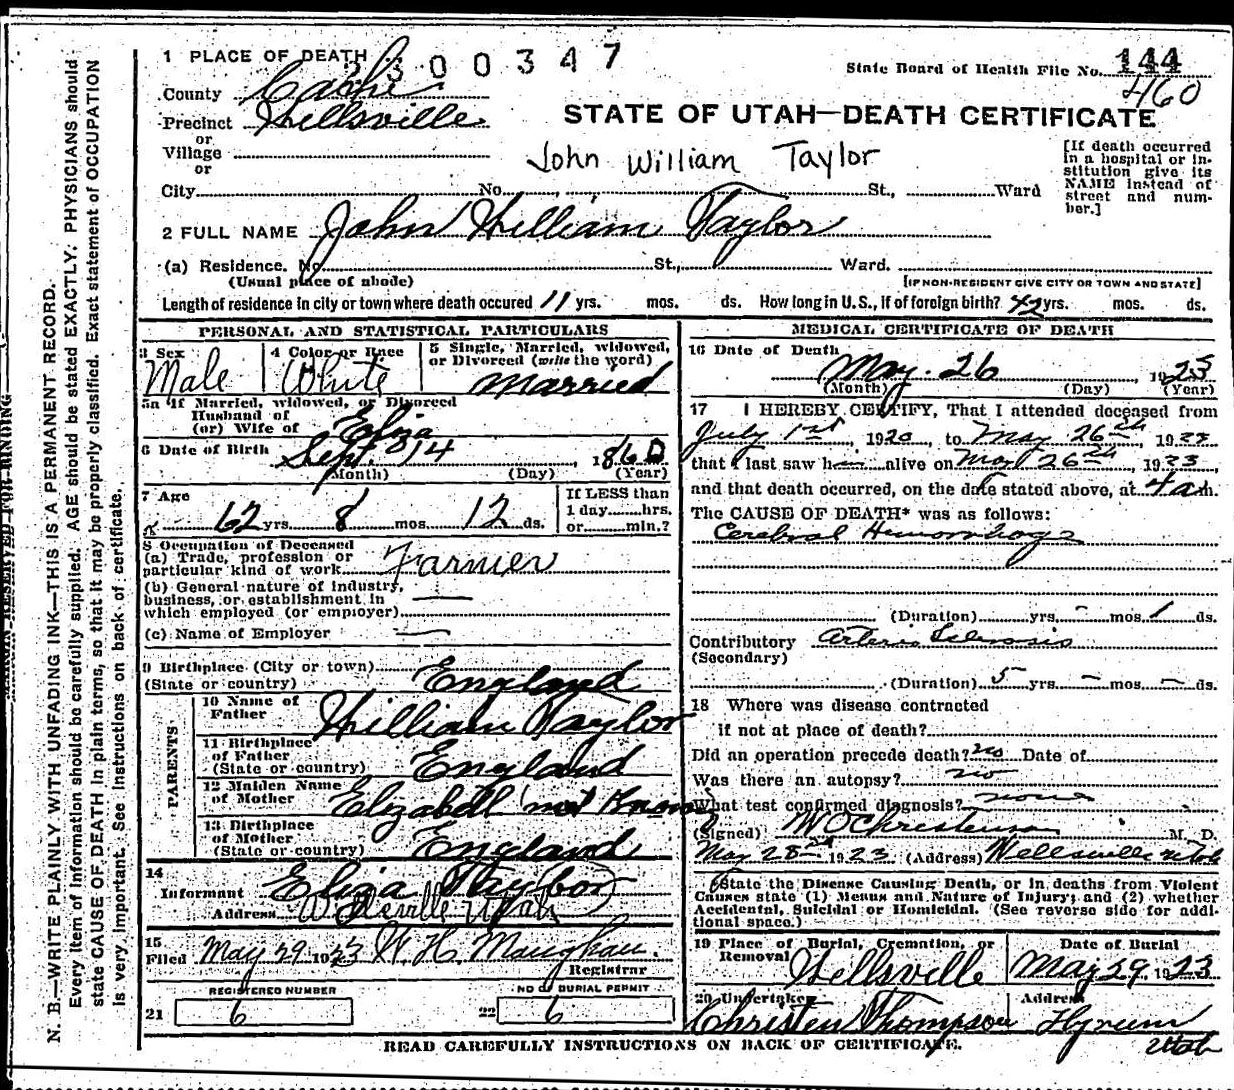 1 PLACE OF DEATH 2300347
State Board of Health File No. 144
460
County Cache
Precinct Wellsville
or
Village
or
STATE OF UTAH—DEATH CERTIFICATE
John William Taylor
[If death occurred in a hospital or institution give its NAME instead of street and number.]
City No. , St., Ward
2 FULL NAME John William Taylor
(a) Residence. No. St., Ward.
(Usual place of abode) [IF NON-RESIDENT GIVE CITY OR TOWN AND STATE]
Length of residence in city or town where death occured 11 yrs. mos. ds. How long in U.S., if of foreign birth? 42 yrs. mos. ds.
PERSONAL AND STATISTICAL PARTICULARS
3 Sex Male
4 Color or Race White
5 Single, Married, widowed, or Divorced (write the word) Married
5a If Married, widowed, or Divorced
Husband of
(or) Wife of Eliza
6 Date of Birth Sept. 14, 1860
(Month) (Day) (Year)
7 Age 62 yrs. 8 mos. 12 ds.
If LESS than 1 day hrs. or min.?
8 Occupation of Deceased
(a) Trade, profession or
particular kind of work Farmer
(b) General nature of industry,
business, or establishment in
which employed (or employer)
(c) Name of Employer
9 Birthplace (City or town)
(State or country) England
PARENTS
10 Name of Father William Taylor
11 Birthplace of Father (State or country) England
12 Maiden Name of Mother Elizabeth not Known
13 Birthplace of Mother (State or country) England
14
Informant Eliza Taylor
Address Wellsville Utah
15
Filed May 29 1923 W. H. Maughan.
Registrar
REGISTERED NUMBER
21 6
NO OF BURIAL PERMIT
22 6
MEDICAL CERTIFICATE OF DEATH
16 Date of Death
May. 26, 1923
(Month) (Day) (Year)
17 I HEREBY CERTIFY, That I attended deceased from
July 1st, 1920, to May 26, 1923
that I last saw him alive on May 26, 1923,
and that death occurred, on the date stated above, at 4 a m.
The CAUSE OF DEATH* was as follows:
Cerebral Hemorrhage
(Duration) yrs. - mos. 1 ds.
Contributory Arterio Sclerosis
(Secondary)
(Duration) 5 yrs. - mos. - ds.
18 Where was disease contracted
if not at place of death?
Did an operation precede death? no Date of
Was there an autopsy? no
What test confirmed diagnosis? none
(Signed) W O Christenson M. D.
May 28 1923 (Address) Wellsville Utah
(State the Disease Causing Death, or in deaths from Violent
Causes state (1) Means and Nature of Injury; and (2) whether
Accidental, Suicidal or Homicidal. (See reverse side for additional space.)
19 Place of Burial, Cremation, or Removal Wellsville
Date of Burial May 29, 1923
20 Undertaker Christen Thompson
Address Hyrum Utah
READ CAREFULLY INSTRUCTIONS ON BACK OF CERTIFICATE.
MARGIN RESERVED FOR BINDING
N. B.—WRITE PLAINLY WITH UNFADING INK—THIS IS A PERMANENT RECORD.
Every item of information should be carefully supplied. AGE should be stated EXACTLY. PHYSICIANS should
state CAUSE OF DEATH in plain terms, so that it may be properly classified. Exact statement of OCCUPATION
is very important. See instructions on back of certificate.